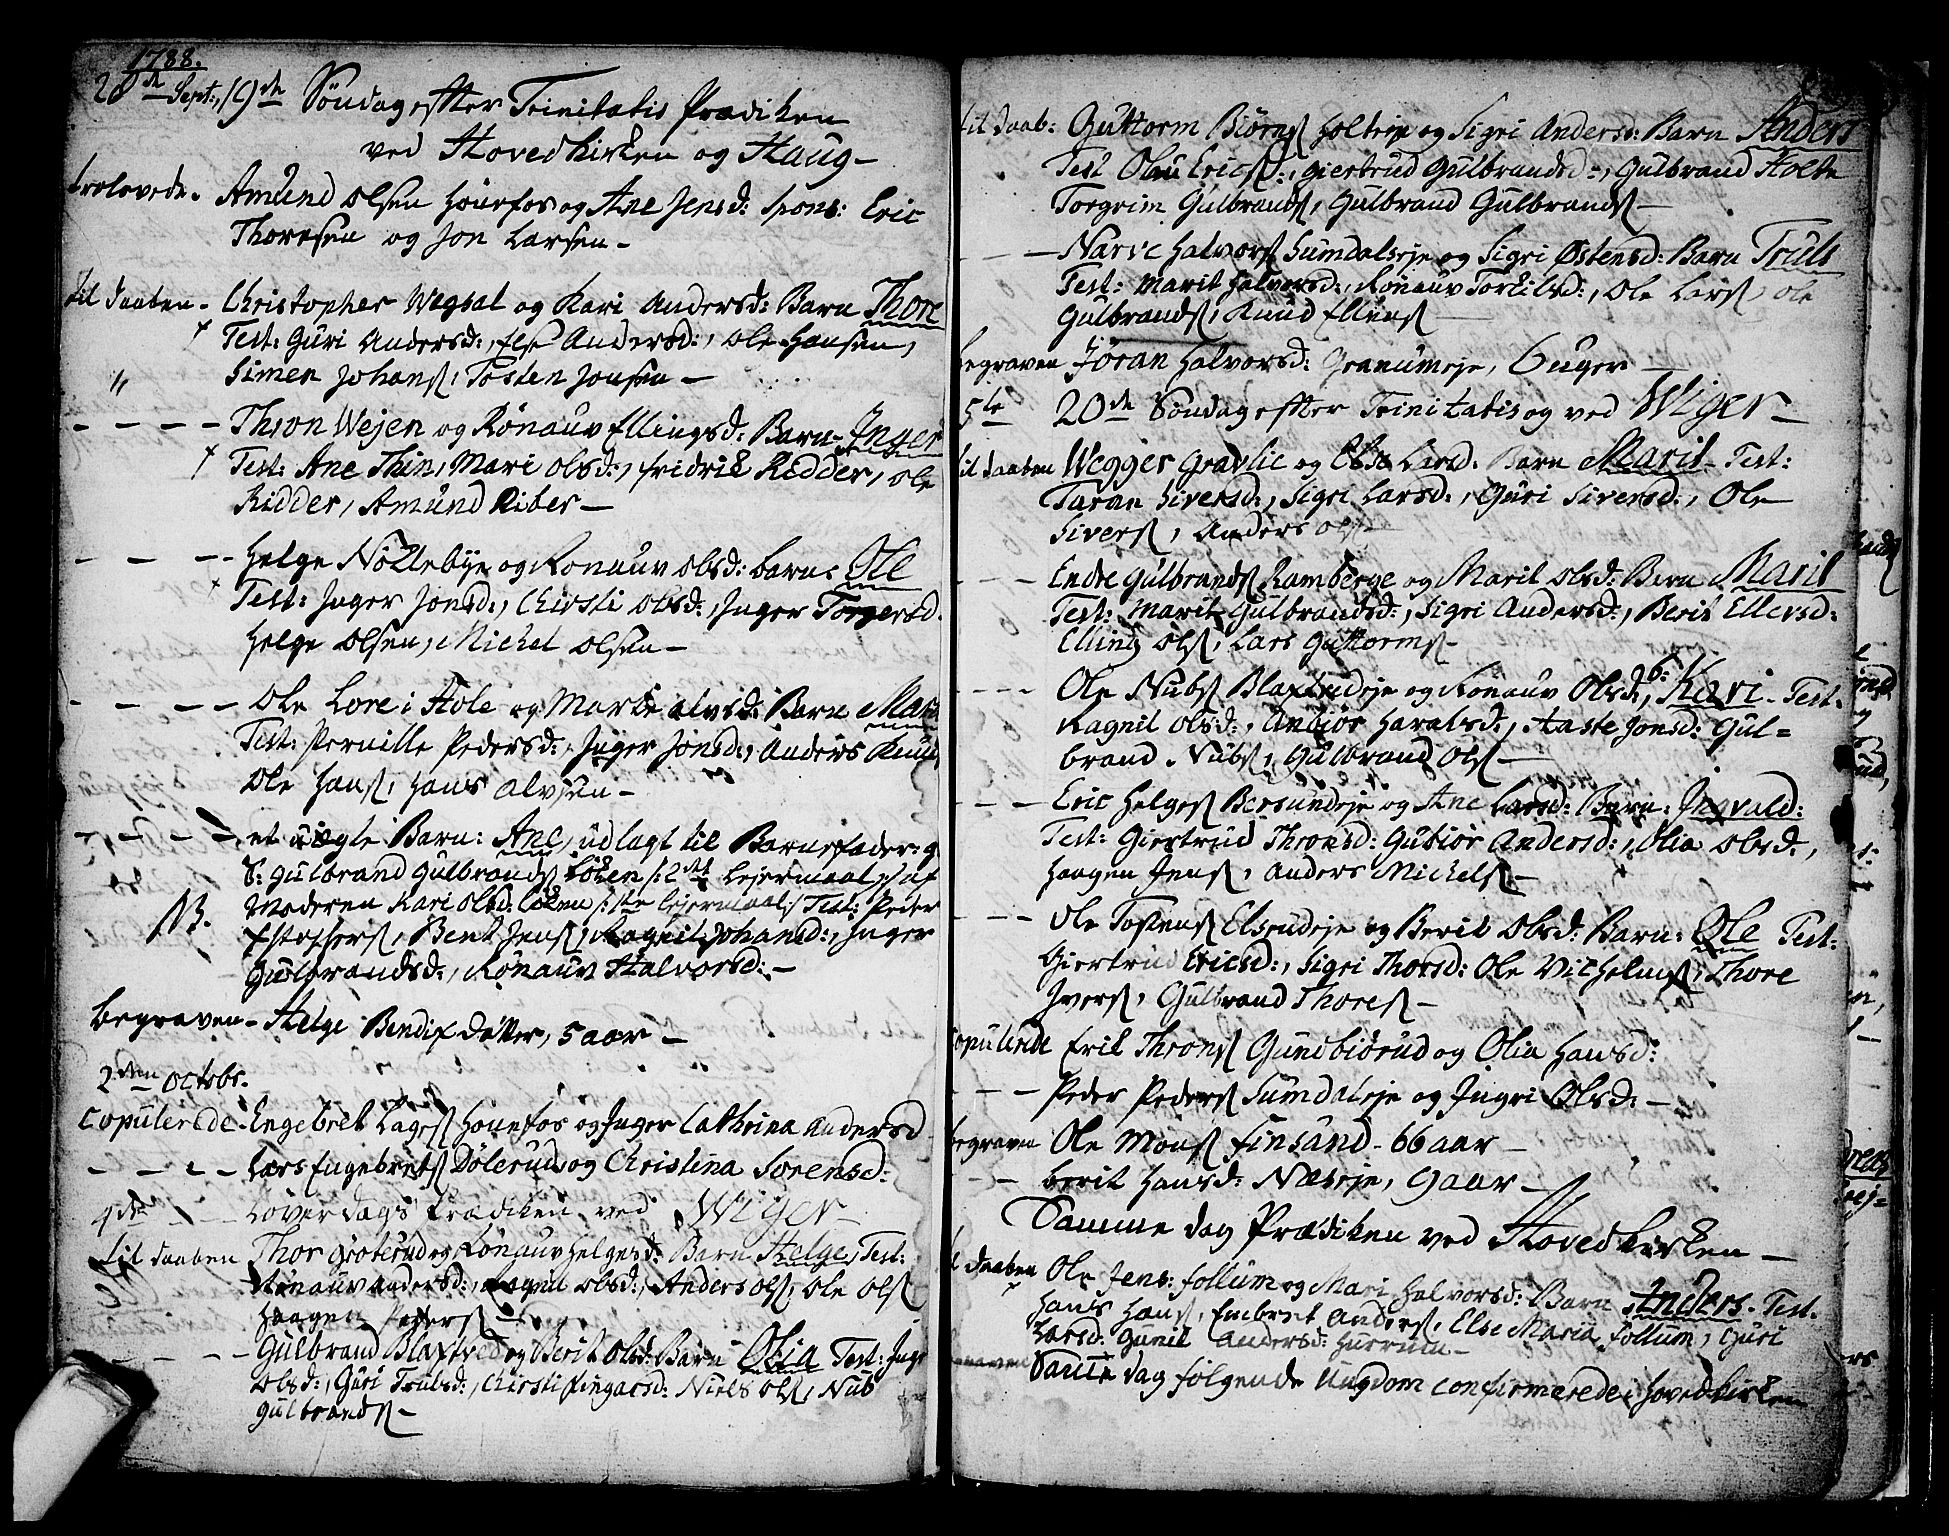 1788.
28de Sept: 19de Søndag effter Trinitatis Prædiken
ved Hovedkirken og Haug –
trolovede. Amund Olsen Hønefos og Ane Jensd: Spons: Eric
Thoresen og Jon Larsen –
til daaben – Christopher Wegsal og Kari Andersd: Barn Thore
Test: Guri Andersd:, Else Andersd:, Ole Hansen,
Simen Johans, Tosten Jonsen –
– – – – Thron Wejen og Rønauv Ellingsd: Barn – Inger
Test: Ane Thin, Mari Olsd:, Fridrik Ridder, Ole
Ridder, Amund Riber –
– – – Helge Nøttebye og Ronauv Olsd: barn: Ole
Test: Inger Jonsd:, Chirsti Olsd:, Inger Torgersd.
Helge Olsen, Michel Olsen –
– – – – Ole Lore i Hole og Marie Alvsd: Barn Mari
Test: Pernille Pedersd:, Inger Jonsd:, Anders Knuds
Ole Hans, Hans Alvsen –
– – – – et uægte Barn: Ane, udlagt til Barnefader: g
S: Gulbrand Gulbrands Løken /: 2det Lejermaal :/ af
Moderen Kari Olsd: Løken /: 1ste Lejermaal :/ Test: Peder
NB. Estephers, Bent Jens, Ragnil Johansd:, Inger
Gulbrandsd:, Rønauv Halvorsd: –
begraven – Helge Bendix dotter, 5 aar –
2den Octobr.
Copulerede. Engebret Lages Hønefos og Inger Cathrina Andersd
– – – – Lars Engebrets Dølerud og Christina Sorensd:
4de – – Løverdags Prædiken ved Wiger –
til daaben Thor Groterud og Rønauv Helgesd: Barn Helge, Test:
Rønauv Andersd:, Ragnil Olsd:, Anders Ols, Ole Ols
Haagen Peders –
– – – – Gulbrand Blaxtved og Berit Olsd: Barn Olia Test: Inge
Olsd:, Guri Trulsd:, Chirsti Einarsd: Niels Ols, Nub
Gulbrands –
til daab: Guttorm Biørns Holteje og Sigri Andersd: Barn Anders
Test Olau Erics:, Giertrud Gulbrandsd:, Gulbrand Holte
Torgrim Gulbrands, Gulbrand Gulbrands –
– – – Narve Halvors Sumdalseje og Sigri Østensd: Barn Truls
Test: Marit Halvorsd:, Rønauv Torkilsd:, Ole Lars, Ole
Gulbrands, Knud Ellens –
begraven Jøran Halvorsd: Granumeje, 6 uger –
5te 20de Søndag effter Trinitatis og ved Wiger –
til daaben Wegger Gravlie og Else Larsd: Barn Marit – Test:
Taran Siversd:, Sigri Larsd:, Guri Siversd:, Ole
Sivers, Anders Ols –
– – – Endre Gulbrands Ramberge og Marit Olsd: Barn Marit
Test: Marit Gulbrandsd:, Sigri Andersd:, Berit Ellersd:
Elling Ols, Lars Guttorms –
– – – Ole Nubs Blaxtvedeje og Ronauv Olsd:, b: Kari – Test:
Ragnil Olsd:, Anbiør Haralsd:, Aaste Jonsd: Gul=
brand Nubs, Gulbrand Ols –
– – – Eric Helges Bersundeje og Ane Larsd: Barn: Ingvald:
Test: Giertrud Thronsd: Gubiør Andersd:, Olia Olsd:,
Haagen Jens, Anders Michels –
– – – Ole Tostens Elsrudeje og Berit Olsd: Barn: Ole Test:
Giertrud Ericsd:, Sigri Thorsd: Ole Vilhelms, Thore
Ivers, Gulbrand Thores –
Copulerede Erik Throns Gundbiørud og Olia Hansd:
– – – Peder Peders Sumdaleje og Ingri Olsd: –
begraven Ole Mons Finsand – 66 aar –
– – berit Hansd: Næseje, 9 aar –
Samme dag Prædiken ved Hovedkirken –
til daaben Ole Jens: Follum og Mari Halvorsd: Barn Anders. Test.
Hans Hans, Embret Anders, Else Maria Follum, Guri
Larsd: Gunil Andersd: Hurrum –
Samme dag følgende Ungdom confirmerede i Hovedkirken